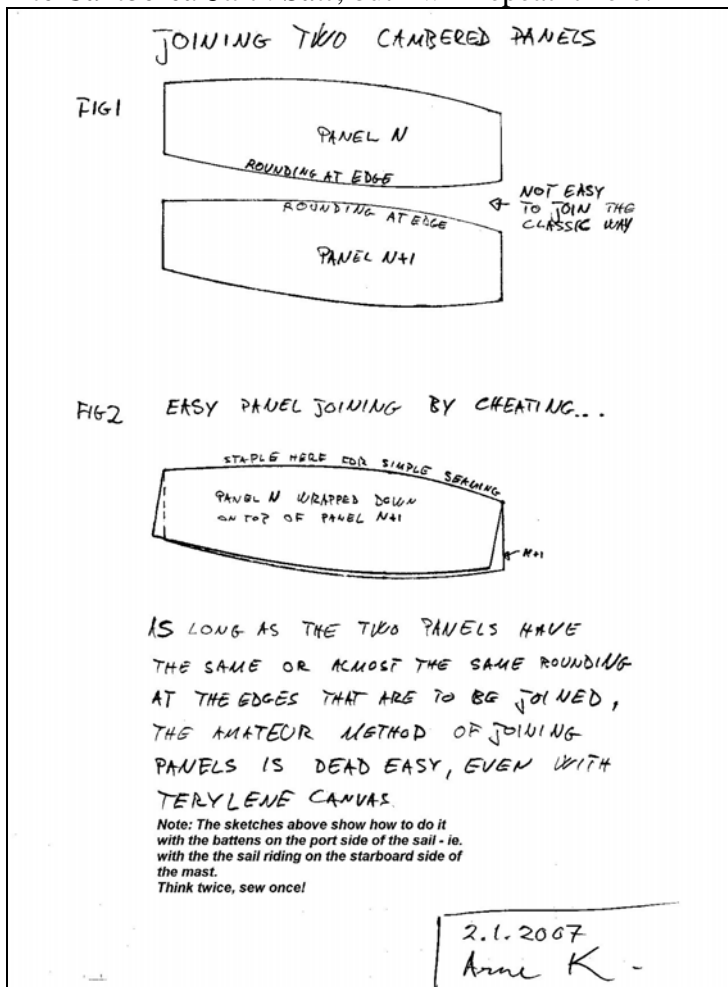 JOINING TWO CAMBERED PANELS
FIG1
PANEL N
ROUNDING AT EDGE
ROUNDING AT EDGE
NOT EASY
TO JOIN THE
CLASSIC WAY
PANEL N+1
FIG2 EASY PANEL JOINING BY CHEATING...
STAPLE HERE FOR SIMPLE SEAMING
PANEL N WRAPPED DOWN
ON TOP OF PANEL N+1
N+1
AS LONG AS THE TWO PANELS HAVE
THE SAME OR ALMOST THE SAME ROUNDING
AT THE EDGES THAT ARE TO BE JOINED,
THE AMATEUR METHOD OF JOINING
PANELS IS DEAD EASY, EVEN WITH
TERYLENE CANVAS.
Note: The sketches above show how to do it
with the battens on the port side of the sail - ie.
with the the sail riding on the starboard side of
the mast.
Think twice, sew once!
2.1.2007
Arne K -